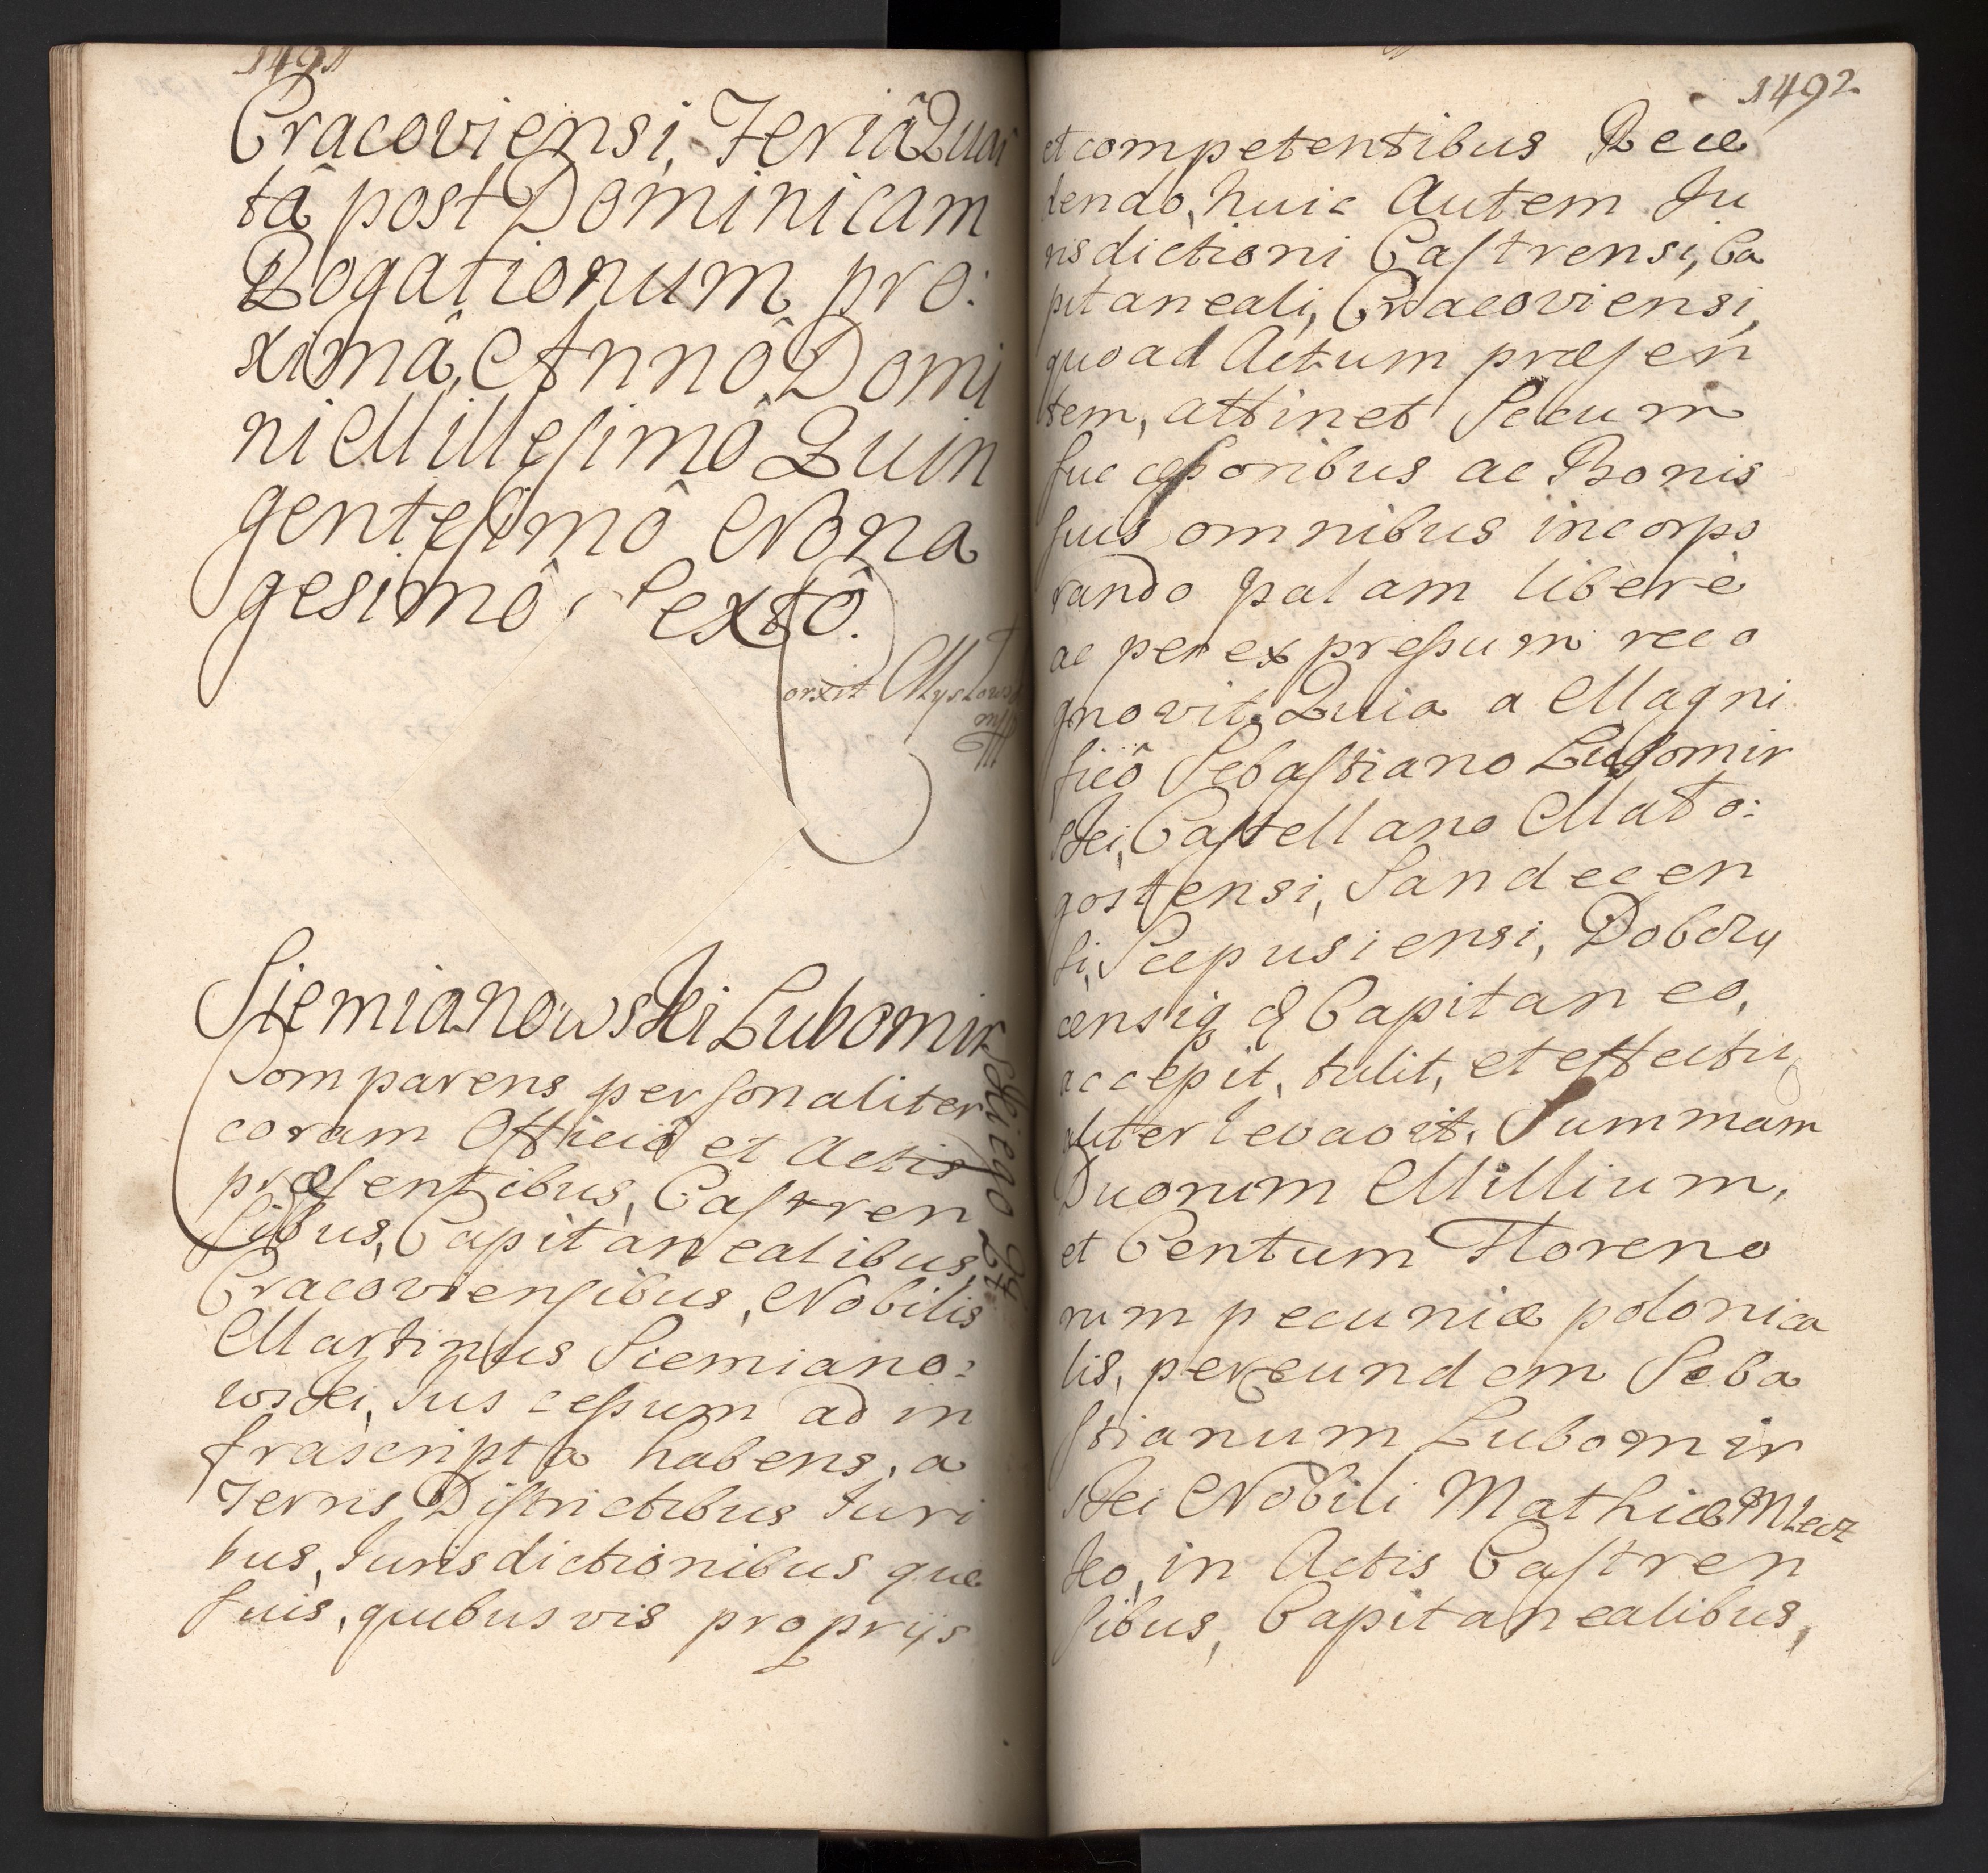 1491
Cracoviensi, Feriâ Quar
tâ post Dominicam
Rogationum pro:
ximâ, Annô Domi
ni Millesimô Quin
gentesimô Nona
gesimô Sextô.
Siemianowski Lubomir
skiego Qt
Comparens personaliter
coram Officiô et Actis
præsentibus, Castren
sibus, Capitanealibus,
Cracoviensibus, Nobilis
Martinus Siemiano:
wski, Jus cessum ad in
frascripta habens, a
Terris Districtibus Juri
bus, Jurisdictionibus que
suis, quibusvis proprijs
1492
et competentibus Rece
dendo, huic Autem Ju
risdictioni Castrensi, Ca
pitaneali, Cracoviensi,
quoad Actum præsen
tem, attinet Se cum
successoribus ac Bonis
suis omnibus incorpo
rando palam liberè
ac per expressum reco
gnovit. Quia a Magni
ficô Sebastiano Lubomir
ski, Castellano Mało:
gostensi, Sandecen
si, Scepusiensi, Dobczy
censiq & Capitaneo,
accepit, tulit, et effectu
aliter levavit. Summam
Duorum Millium,
et Centum Floreno
rum pecuniæ polonica
lis, per eundem Seba
stianum Lubomir
ski Nobili Mathiæ Młecz
ko, in Actis Castren
sibus, Capitanealibus,